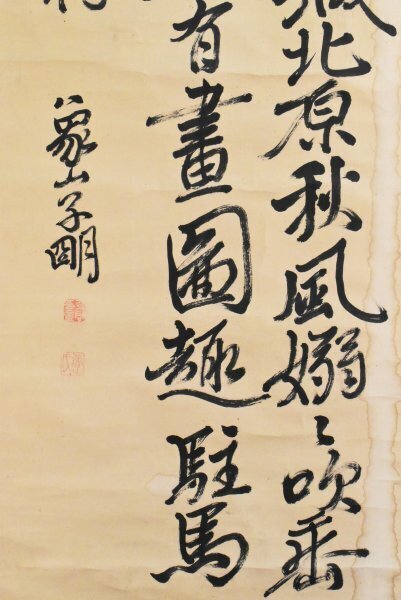 北原秋風嫋〻吹垂
有畫圖趣駐馬
象山子明